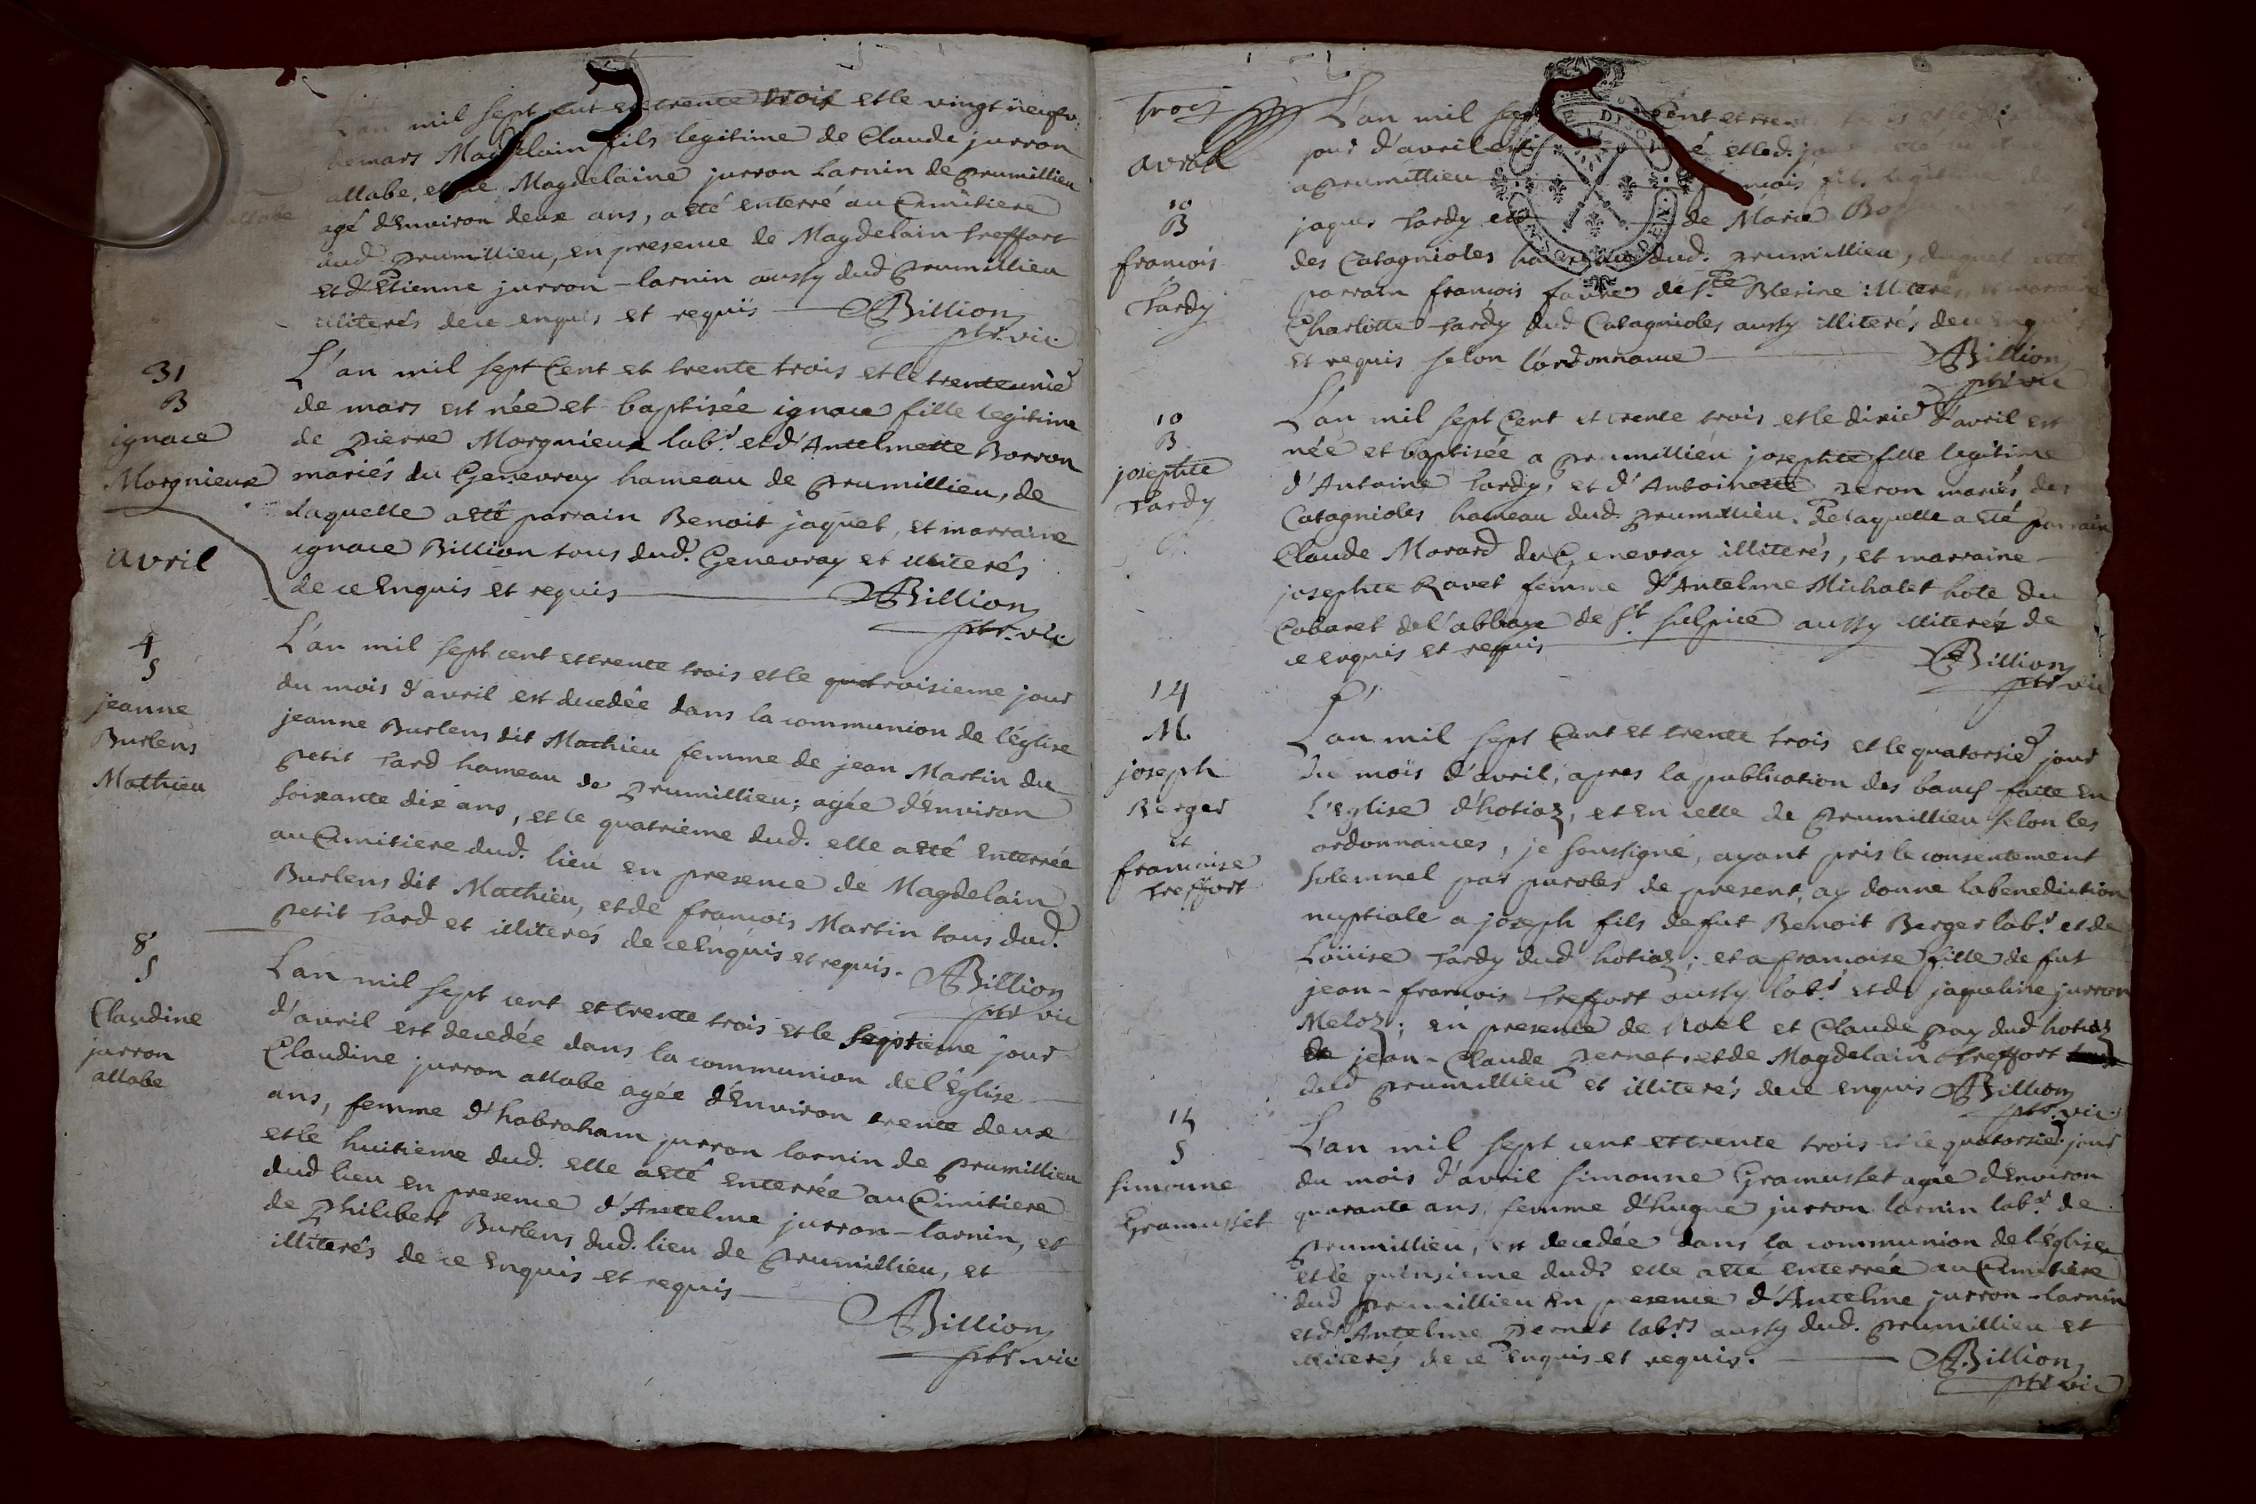 L'an mil sept cent et trente trois et le vingt neufv.
de mars Magdelain fils legitime de Claude jurron
allabe, et de Magdelaine jurron larnin de prumillieu
agé d'Environ deux ans, a eté enterré au Cimitiere
dud. prumillieu, en presence de Magdelain treffort
et d'Etienne jurron-larnin aussy dud prumillieu
illiterés de ce enquis et requis Billion
ptr. vic.
allabe
31
B
ignace
Morgnieux
L'an mil sept Cent et trente trois et le trente unie
de mars est née et baptisée ignace fille legitime
de pierre Morgnieux labr. et d'Antelmette Borron
mariés du Genevray hameau de prumillieu, de
laquelle a eté parrain Benoit jaquet, et marraine
ignace Billion tous dud. Genevray et illiterés
de ce Enquis et requis Billion
ptr. vic
avril
4
S
jeanne
Burlens
Mathieu
L'an mil sept cent et trente trois et le quatroisieme jour
du mois d'avril est decedée dans la communion de l'église
jeanne Burlens dit Mathieu femme de jean Martin du
petit tard hameau de prumillieu; agée d'Environ
soixante dix ans, et le quatrieme dud. elle a eté enterrée
au Cimitiere dud. lieu en presence de Magdelain
Burlens dit Mathieu, et de francois Martin tous dud.
petit tard et illiterés de ce Enquis et requis. Billion
ptr vic
8
S
Claudine
jurron
allabe
L'an mil sept cent et trente trois et le septieme jour
d'avril est decedée dans la communion de l'Eglise
Claudine jurron allabe agée d'Environ trente deux
ans, femme d'habraham jurron larnin de prumillieu
et le huitieme dud. elle a eté enterrée au Cimitiere
dud lieu en presence d'Antelme jurron-larnin, et
de philibert Burlens dud. lieu de prumillieu, et
illiterés de ce Enquis et requis
Billion
ptr. vic
Trois
avril
10
B
francois
tardy
L'an mil sept Cent et tren
jour d'avril est né et led. jour
a prumillieu francois fils legitime de
jaques tardy et de Marie
des Catagnioles hameau dud. prumillieu, duquel
parrain francois favre de Ste. Blesine illiterés, et marraine
Charlotte tardy dud Catagnioles aussy illiterés de ce Enq
et requis selon l'ordonnance Billion
ptr vic
10
B
josephte
tardy
L'an mil sept Cent et trente trois et le dixie d'avril est
née et baptisée a prumillieu josephte fille legitime
d'Antoine tardy, et d'Antoinette peron mariés des
Catagnioles hameau dud. prumillieu. De laquelle a eté parrain
Claude Morard du Genevray illiterés, et marraine
josephte Ravet femme d'Antelme Michalet hote du
Cabaret de l'abbaye de St. sulpice aussy illiterés de
ce enquis et requis Billion
ptr vic
14
M.
joseph
Berger
et
francoise
treffort
L'an mil sept Cent et trente trois et le quatorsie jour
du mois d'avril, apres la publication des bancs faite en
l'Eglise d'hotiaz, et En celle de prumillieu selon les
ordonnances, je soussigné, ayant pris le consentement
solemnel par paroles de present, ay donné la benediction
nuptiale a joseph fils de fut Benoit Berger labr. et de
Louïse tardy dud hotiaz; et a francoise fille de fut
jean-francois treffort aussy labr. et de jaqueline jurron
Meloz; en presence de Noel et Claude pay dud hotiaz
de jean-Claude pernet, et de Magdelain treffort
dud prumillieu et illiterés de ce enquis Billion
ptr. vic.
15
S
simonne
Gramusset
L'an mil sept cent et trente trois et le quatorsie. jour
du mois d'avril simonne Gramusset agée d'Environ
quarante ans, femme d'hugue jurron larnin labr. de
prumillieu, est decedée dans la communion de l'église
et le quinsieme dud. elle a eté enterrée au Cimitiere
dud prumillieu en presence d'Antelme jurron-larnin
et d'Antelme pernet labrs. aussy dud. prumillieu et
illiterés de ce enquis et requis. Billion
ptr vic